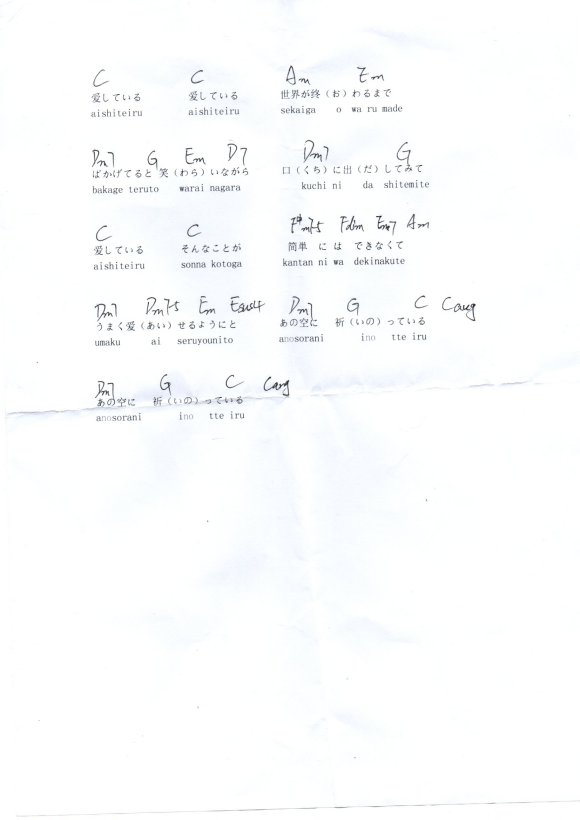 C C Am Em
愛している 愛している 世界が終（お）わるまで
aishiteiru aishiteiru sekaiga o wa ru made
Dm7 G Em D7 Dm7 G
ばかげてると 笑（わら）いながら 口（くち）に出（だ）してみて
bakage teruto warai nagara kuchi ni da shitemite
C C F#m7-5 Fdim Em7 Am
愛している そんなことが 簡単 に は できなくて
aishiteiru sonna kotoga kantan ni wa dekinakute
Dm7 Dm7-5 Em Esus4 Dm7 G C Caug
うまく愛（あい）せるようにと あの空に 祈（いの）っている
umaku ai seruyounito anosorani ino tte iru
Dm7 G C Caug
あの空に 祈（いの）っている
anosorani ino tte iru